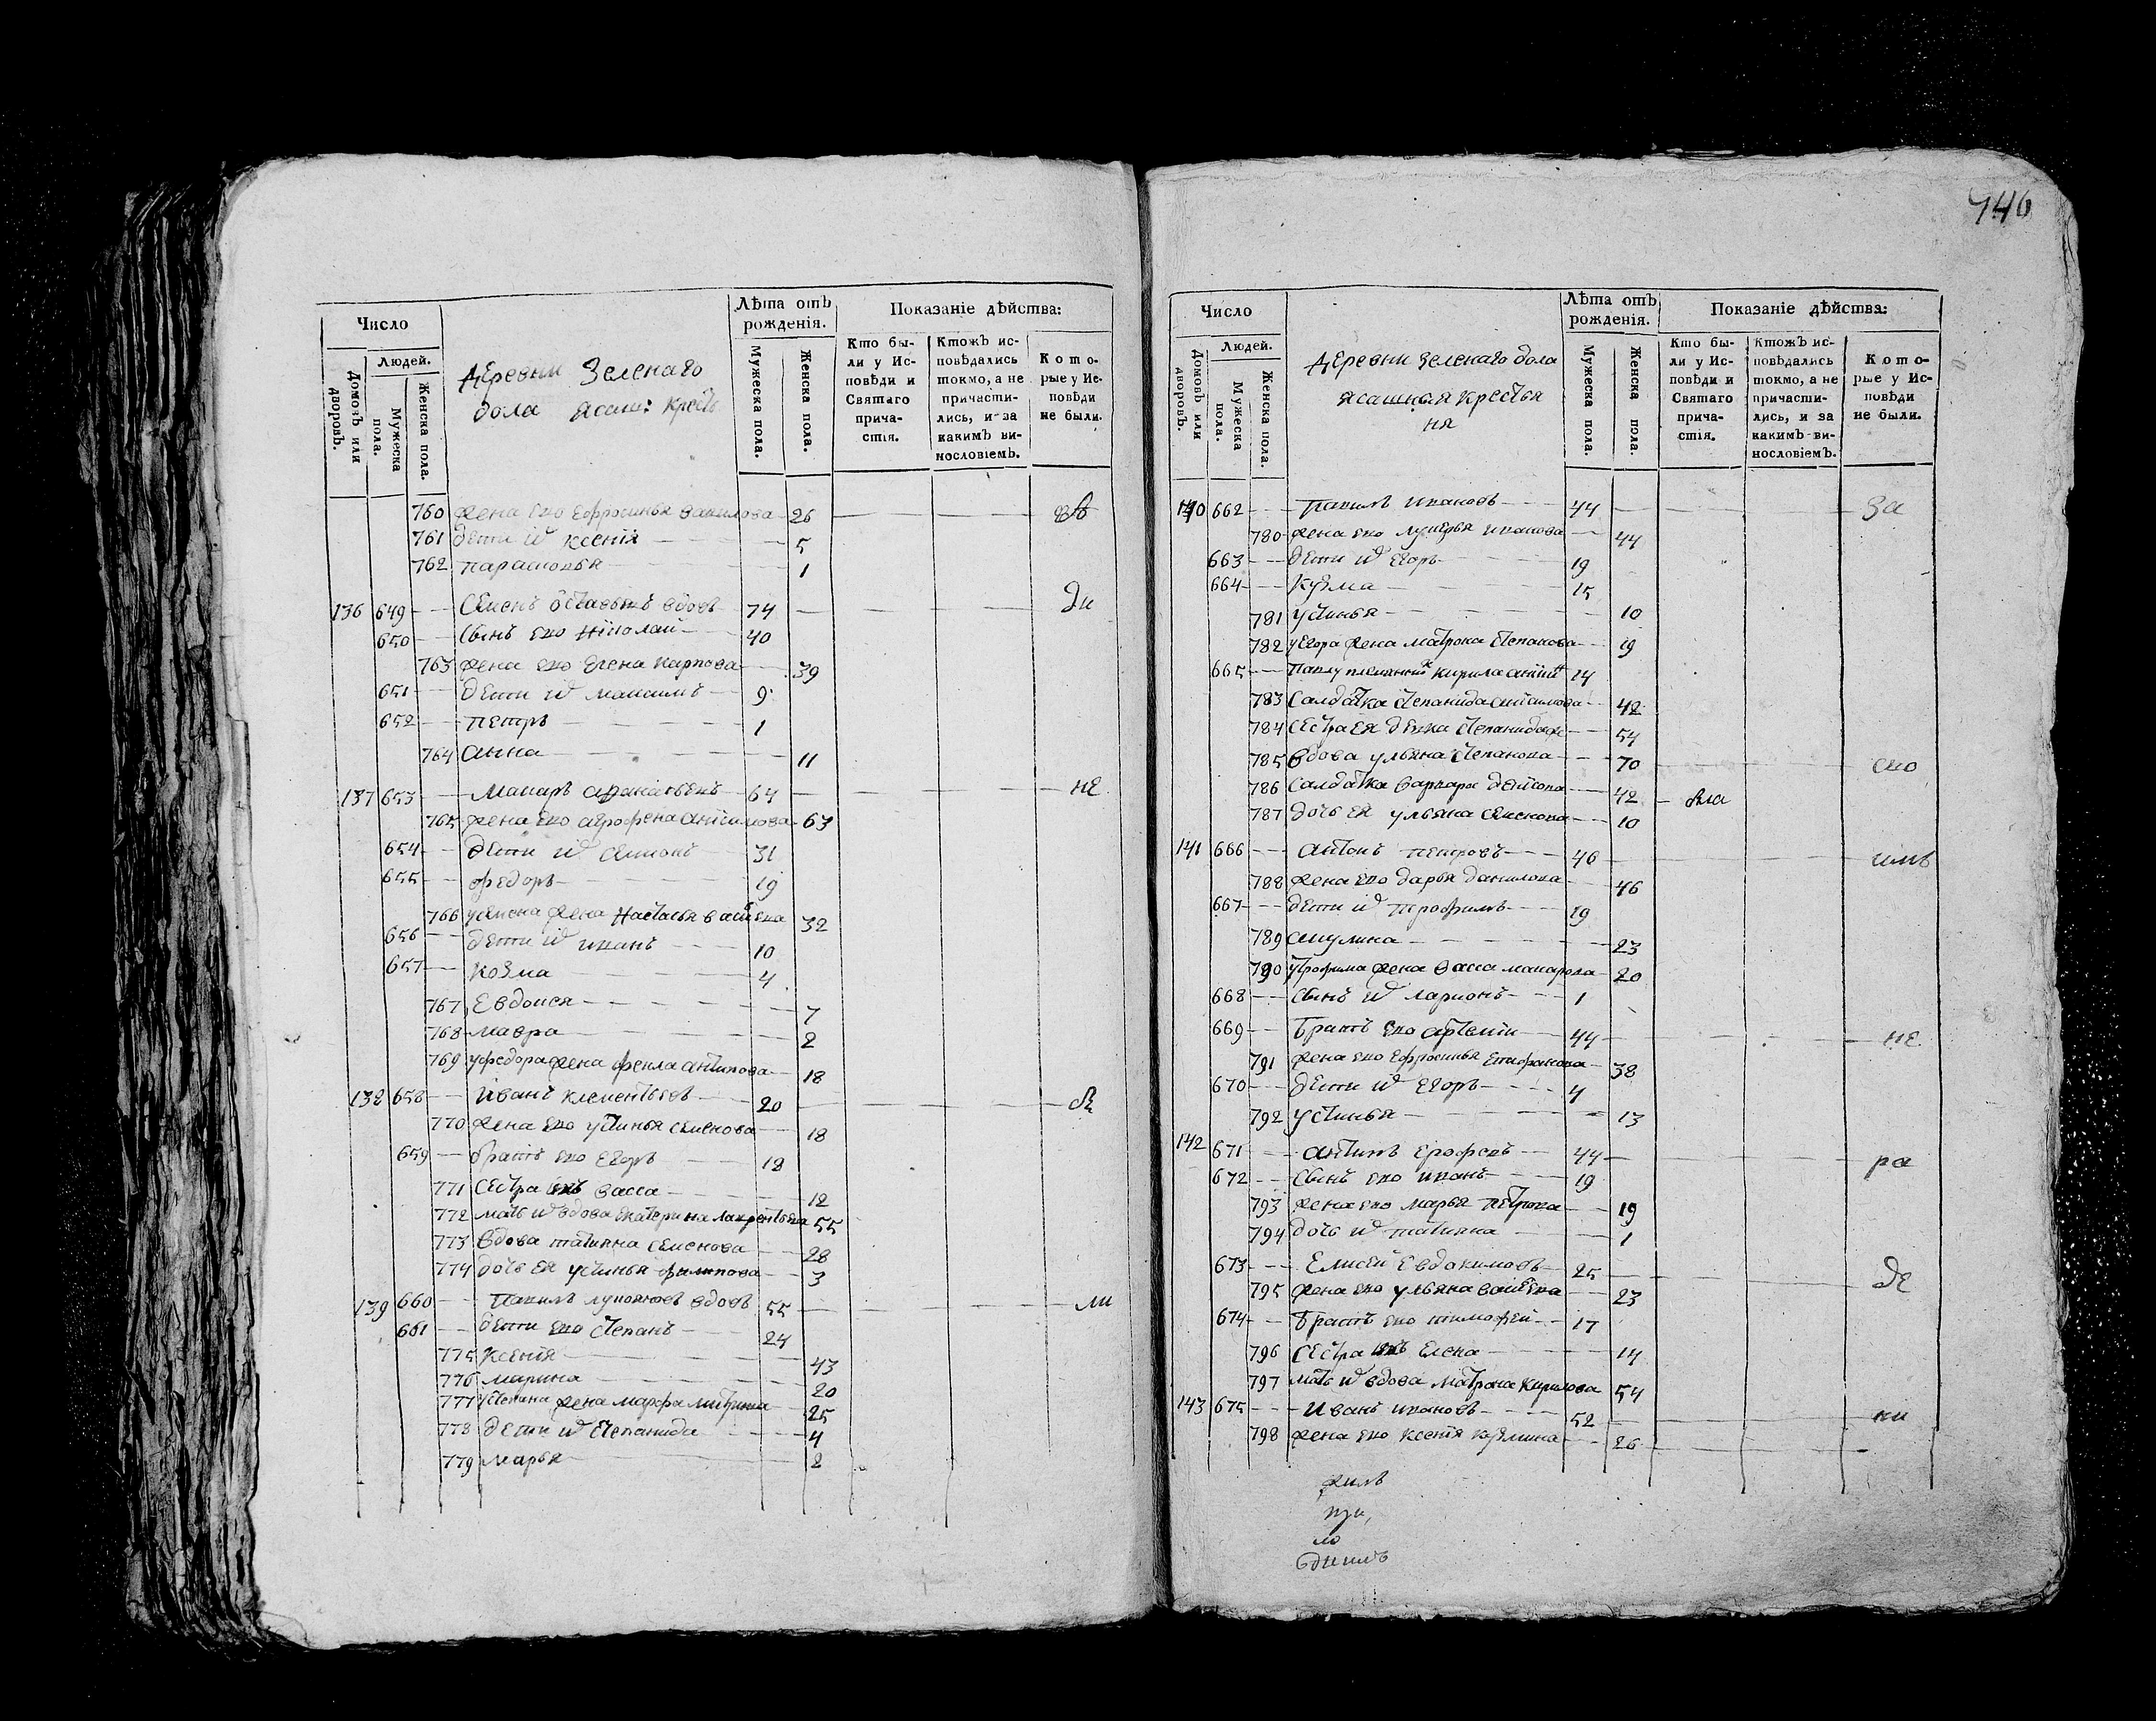 740
Число
Людей.
Домовъ или дворовъ.
Мужеска пола.
Женска пола.
деревни Зеленаго
дола ясаш: крестъ
Лѣта отъ рожденія.
Мужеска пола.
Женска пола.
Показаніе дѣйства:
Кто бы-
ли у Ис-
повѣди и
Святаго
прича-
стія.
Ктожъ ис-
повѣдались
токмо, а не
причасти-
лись, и за
какимъ ви-
нословіемъ.
Кото-
рые у Ис-
повѣди
не были.
760 жена ево ефросинья данилова 26
761 дети их ксения 5
762 парасковья 1
136 649 Семенъ вдовъ 74 ди
650 сынъ ево николай 40
763 жена ево елена карпова 39
651 дети их максимъ 9
652 петръ 1
764 анна 11
137 653 Макаръ афанасьевъ 64 не
765 жена ево агрофена анисимова 63
654 дети их симионъ 31
655 федоръ 19
766 усемена жена настасья васильева 32
656 дети их иванъ 10
657 козма 4
767 Евдокея 7
768 мавра 2
769 уфедора жена фекла антипова 18
138 658 Иванъ клементьевъ 20
770 жена ево устинья семенова 18
659 братъ ево егоръ 18
771 сестра ихъ васса 12
772 мать их вдова екатерина лаврентьева 55
773 вдова татияна семенова 28
774 дочь ея устинья филипова 3
139 660 Павилъ вдовъ 55 ли
661 дети ево степанъ 24
775 ксения 43
776 марина 20
777 устепана жена марфа митриева 25
778 дети их степанида 4
779 марья 2
Число
Людей.
Домовъ или дворовъ.
Мужеска пола.
Женска пола.
деревни зеленаго дола
ясашныя крестья
ня
Лѣта отъ рожденія.
Мужеска пола.
Женска пола.
Показаніе дѣйства:
Кто бы-
ли у Ис-
повѣди и
Святаго
прича-
стія.
Ктожъ ис-
повѣдались
токмо, а не
причасти-
лись, и за
какимъ ви-
нословіемъ.
Кото-
рые у Ис-
повѣди
не были.
140 662 Павилъ ивановъ 44 за
780 жена ево лукерья иванова 44
663 дети их егоръ 19
664 кузма 15
781 устинья 10
782 уегора жена матрона степанова 19
665 кирила 14
783 салдатка степанида анисимова 42
784 сестра ея девка степанида 54
785 вдова ульяна степанова 70 ево
786 салдатка варвара 42
787 дочь ея ульяна семенова 10
141 666 антонъ петровъ 46
788 жена ево дарья данилова 46
667 дети их трофимъ 19
789 акулина 23
790 утрофима жена васса макарова 20
668 сынъ их ларионъ 1
669 братъ ево артемии 44 не
791 жена ево ефросинья епифанова 38
670 дети их егоръ 4
792 устинья 13
142 671 антипъ ерофеевъ 44 ра
672 сынъ ево иванъ 19
793 жена ево марья петрова 19
794 дочь их татияна 1
673 Елисей Евдокимовъ 25 де
795 жена ево ульяна васильева 23
674 братъ ево тимофей 17
796 сестра ихъ елена 14
797 мать их вдова матрона кирилова 54
143 675 Иванъ ивановъ 52
798 жена ево ксения кузмина 26